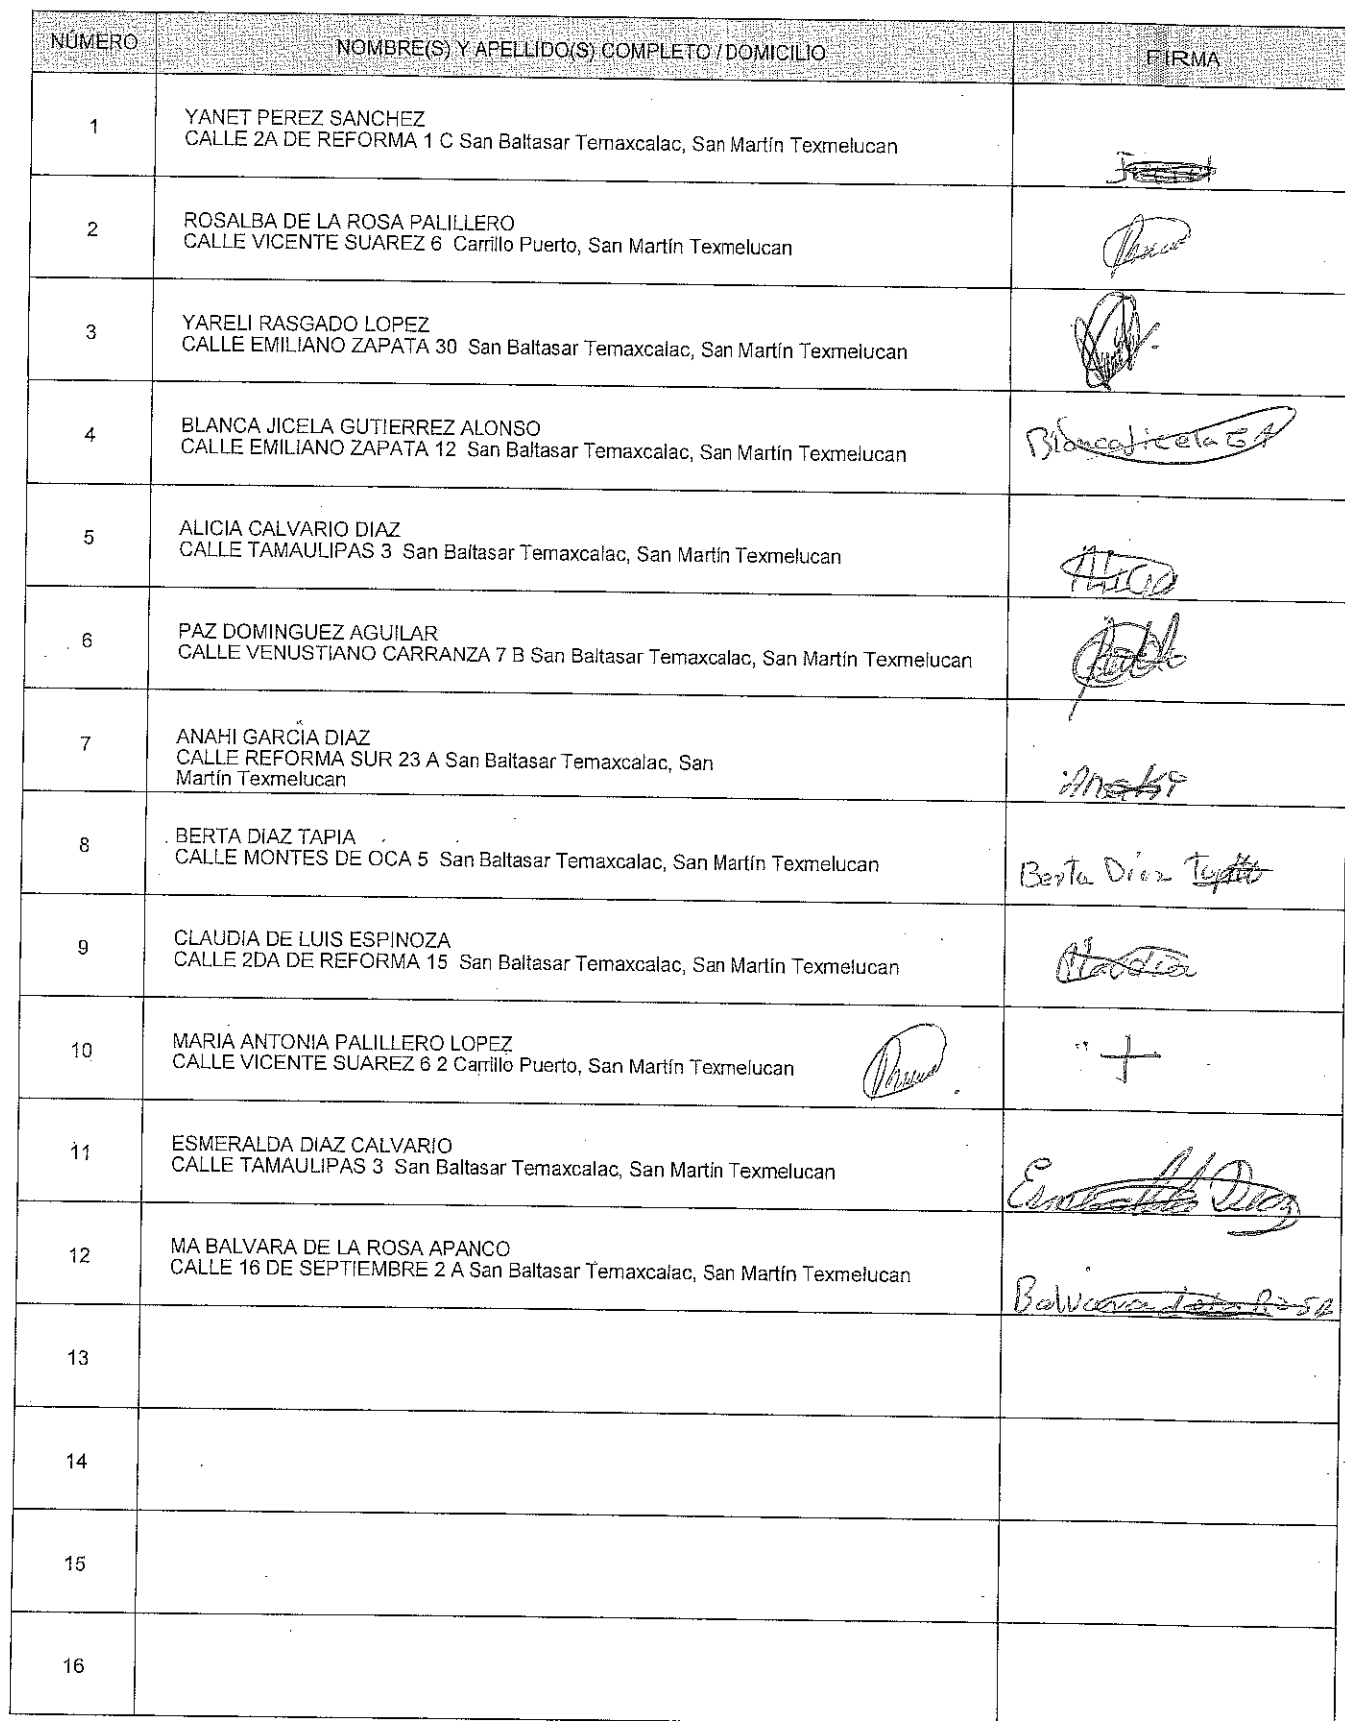 NÚMERO NOMBRE(S) Y APELLIDO(S) COMPLETO / DOMICILIO FIRMA
1 YANET PEREZ SANCHEZ
CALLE 2A DE REFORMA 1 C San Baltasar Temaxcalac, San Martín Texmelucan
2 ROSALBA DE LA ROSA PALILLERO
CALLE VICENTE SUAREZ 6 Carrillo Puerto, San Martín Texmelucan
3 YARELI RASGADO LOPEZ
CALLE EMILIANO ZAPATA 30 San Baltasar Temaxcalac, San Martín Texmelucan
4 BLANCA JICELA GUTIERREZ ALONSO
CALLE EMILIANO ZAPATA 12 San Baltasar Temaxcalac, San Martín Texmelucan
Blanca Jicela G A
5 ALICIA CALVARIO DIAZ
CALLE TAMAULIPAS 3 San Baltasar Temaxcalac, San Martín Texmelucan
Alicia
6 PAZ DOMINGUEZ AGUILAR
CALLE VENUSTIANO CARRANZA 7 B San Baltasar Temaxcalac, San Martín Texmelucan
7 ANAHI GARCIA DIAZ
CALLE REFORMA SUR 23 A San Baltasar Temaxcalac, San
Martín Texmelucan
Anahi
8 BERTA DIAZ TAPIA
CALLE MONTES DE OCA 5 San Baltasar Temaxcalac, San Martín Texmelucan
Berta Diaz Tapia
9 CLAUDIA DE LUIS ESPINOZA
CALLE 2DA DE REFORMA 15 San Baltasar Temaxcalac, San Martín Texmelucan
Claudia
10 MARIA ANTONIA PALILLERO LOPEZ
CALLE VICENTE SUAREZ 6 2 Carrillo Puerto, San Martín Texmelucan
11 ESMERALDA DIAZ CALVARIO
CALLE TAMAULIPAS 3 San Baltasar Temaxcalac, San Martín Texmelucan
Esmeralda Diaz
12 MA BALVARA DE LA ROSA APANCO
CALLE 16 DE SEPTIEMBRE 2 A San Baltasar Temaxcalac, San Martín Texmelucan
Balvara de la Rosa
13
14
15
16